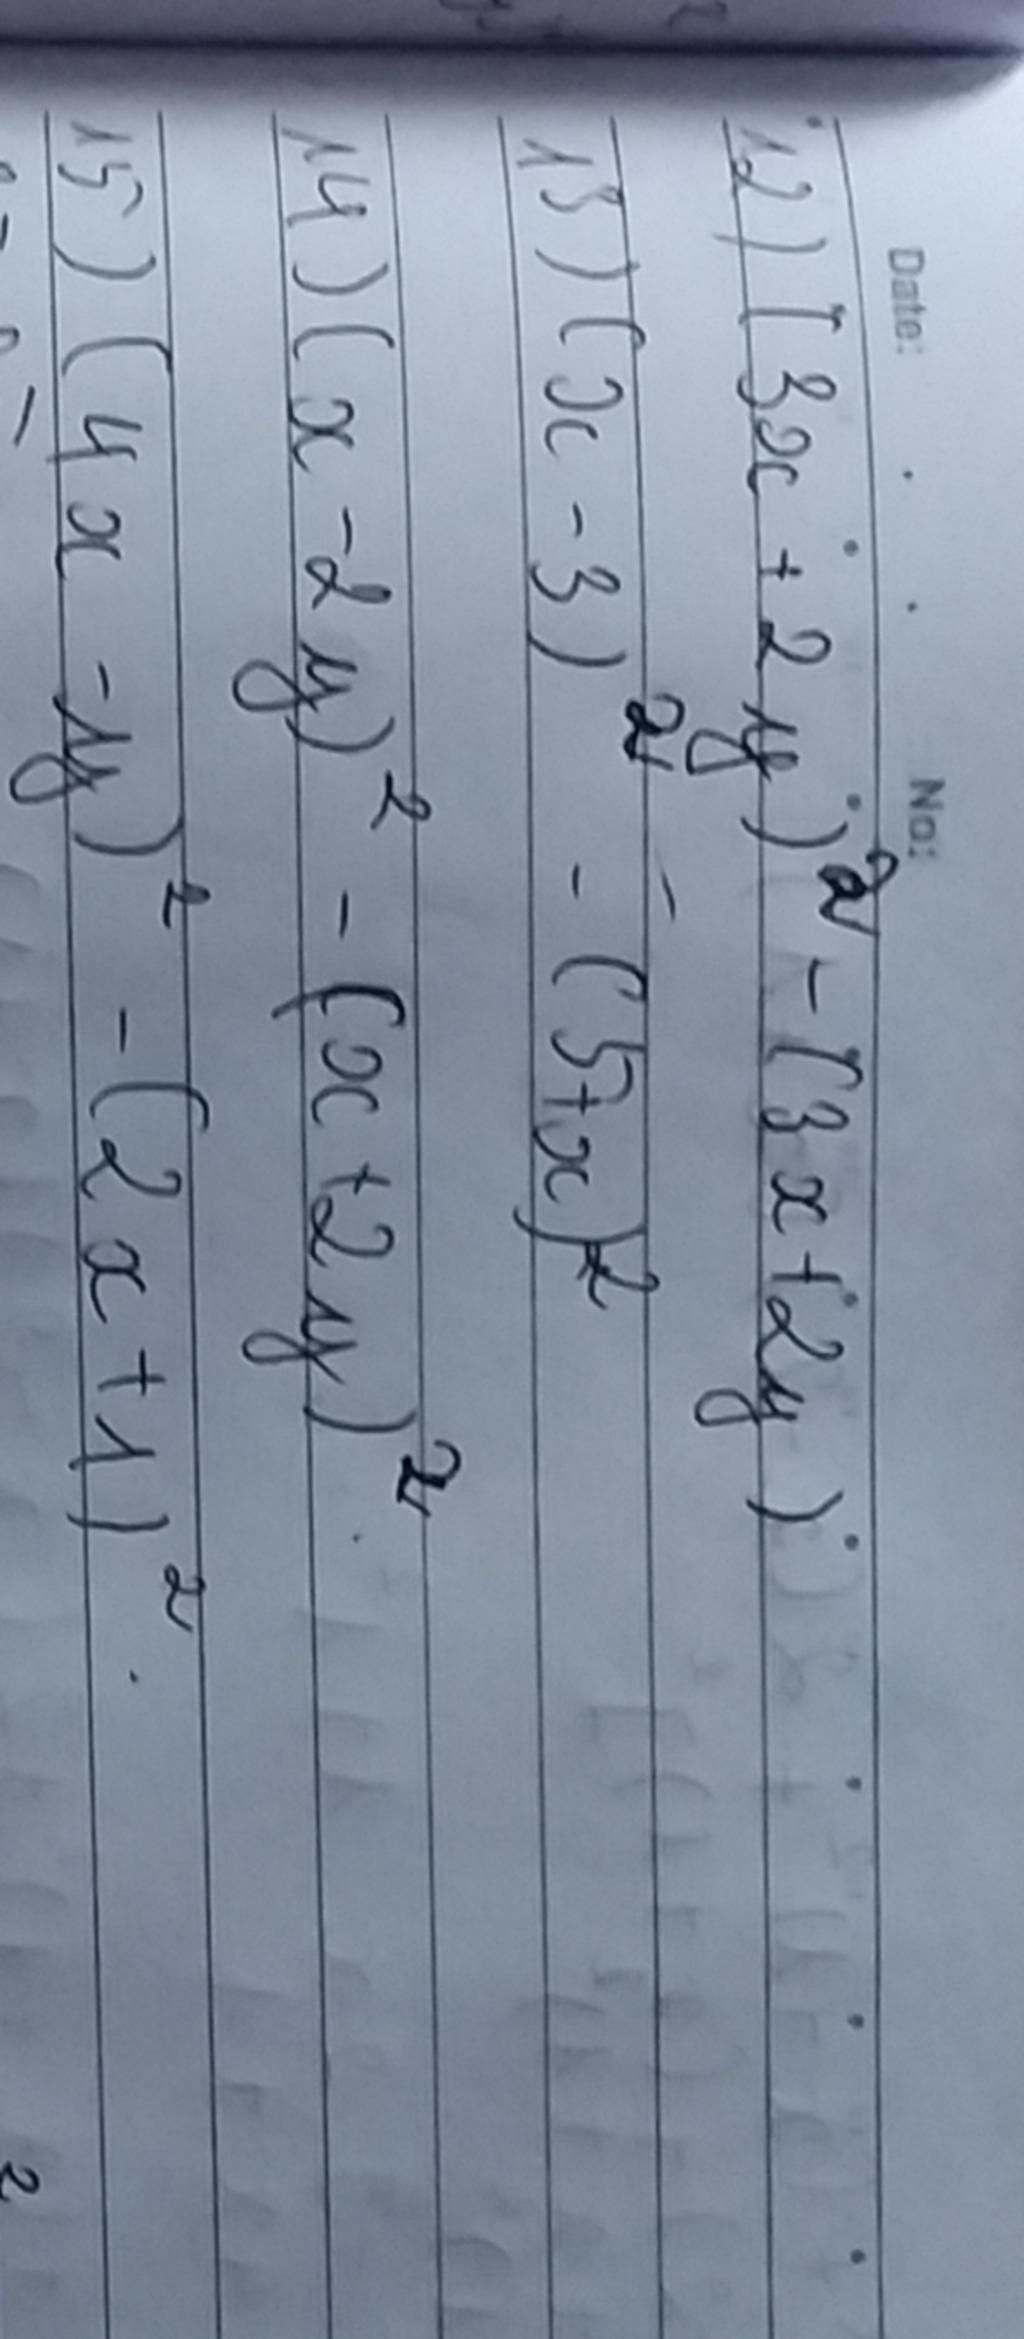 Date: No:
12) (3x + 2y)² - (3x + 2y)
13) (x - 3)² - (5+x)²
14) (x - 2y)² - (x + 2y)².
15) (4x - y)² - (2x + 1)².